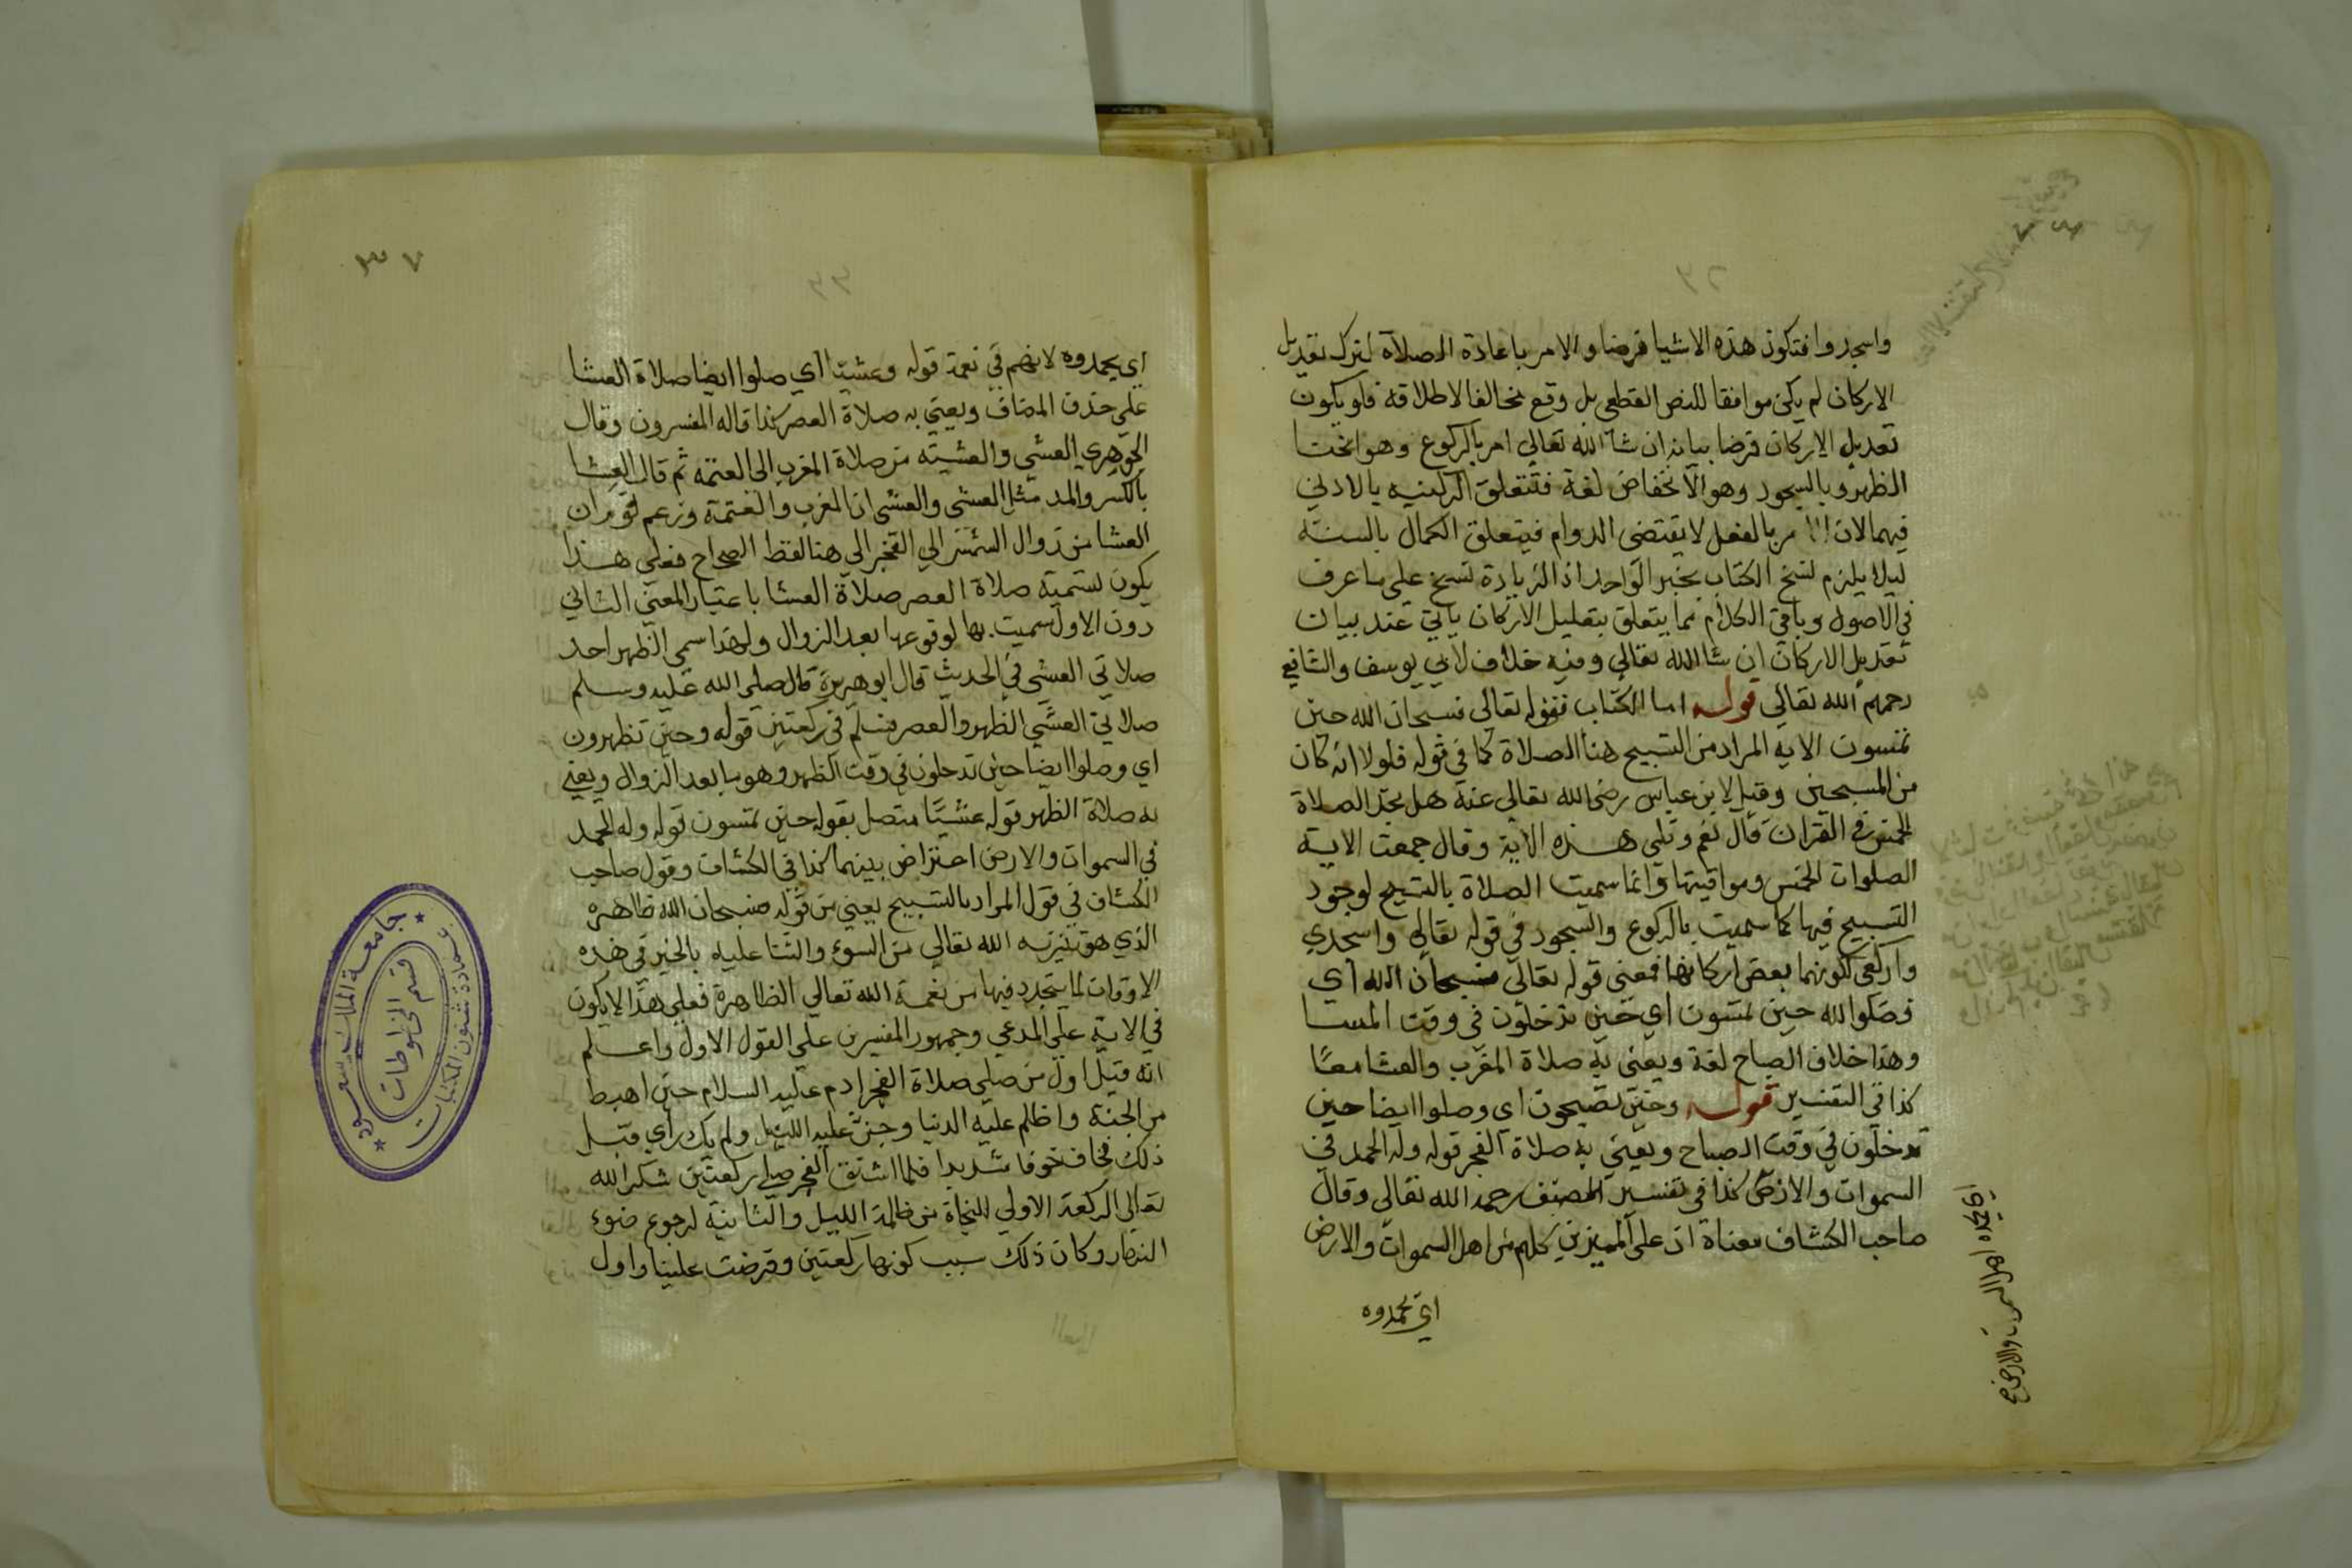 ٣٢
واسجدوا فتكون هذه الاشيا فرضا والامر باعادة الصلاة لترك تعديل
الاركان لم يكن موافقا للنص القطعي بل وقع مخالفا لاطلاقه فلو يكون
تعديل الاركان فرضا بيانه ان شا الله تعالي امر بالركوع وهو انحنا
الظهر وبالسجود وهو الانخفاض لغة فتتعلق الركنيه بالادني
فيهما لان الامر بالفعل لا يقتضي الدوام فيتعلق الكمال بالسنة
ليلا يلزم نسخ الكتاب بخبر الواحد اذ الزيادة نسخ علي ما عرف
في الاصول وباقي الكلام مما يتعلق بتعليل الاركان ياتي عند بيان
تعديل الاركان ان شا الله تعالي وفيه خلاف لابي يوسف والشافعي
رحمهم الله تعالي قوله اما الكتاب فقوله تعالي فسبحان الله حين
تمسون الايه المراد من التسبيح هنا الصلاة كما في قوله فلولا انه كان
من المسبحين وقيل لابن عباس رضي الله تعالي عنه هل تجد الصلاة
الخمس في القران قال نعم وتلي هذه الاية وقال جمعت الاية
الصلوات الخمس ومواقيتها وانما سميت الصلاة بالتسبيح لوجود
التسبيح فيها كما سميت بالركوع والسجود في قوله تعالي واسجدي
واركعي لكونهما بعض اركانها فمعني قوله تعالي فسبحان الله اي
فصلوا لله حين تمسون اي حين تدخلون في وقت المسا
وهذا خلاف الصباح لغة ويعني به صلاة المغرب والعشا معًا
كذا في التفسير قوله وحين تصبحون اي وصلوا ايضا حين
تدخلون في وقت الصباح ويعني به صلاة الفجر قوله وله الحمد في
السموات والارض كذا في تفسير المصنف رحمه الله تعالي وقال
صاحب الكشاف معناة ان علي المميزين كلهم من اهل السموات والارض
اي يحمدوه
اي يحمده اهل السموات والارض
٣٧
٣٣
اي يحمدوه لانهم في نعمة قوله وعشيّا اي صلوا ايضا صلاة العشا
علي حذف المضاف ويعني به صلاة العصر كذا قاله المفسرون وقال
الجوهري العشي والعشية من صلاة المغرب الي العتمه ثم قال العشا
بالكسر والمد مثل العشي والعشى ان المغرب والعتمة وزعم قوم ان
العشا من زوال الشمس الي الفجر الي هنا لفظ الصحاح فعلي هذا
يكون تسمية صلاة العصر صلاة العشا باعتبار المعني الثاني
دون الاول سميت بها لوقوعها بعد الزوال ولهذا سمي الظهر احد
صلاتي العشي في الحديث قال ابو هريرة قال صلي الله عليه وسلم
صلاتي العشي الظهر والعصر فسلم في ركعتين قوله وحين تظهرون
اي وصلوا ايضا حين تدخلون في وقت الظهر وهو ما بعد الزوال ويعني
به صلاة الظهر قوله عشيًّا متصل بقوله حين تمسون قوله وله الحمد
في السموات والارض اعتراض بينهما كذا في الكشاف وقول صاحب
الكشاف في قول المراد بالتسبيح يعني من قوله فسبحان الله ظاهره
الذي هو تنزيه الله تعالي من السوء والثنا عليه بالخير في هذه
الاوقات لما يتجدد فيها من نعمة الله تعالي الظاهرة فعلي هذا لا يكون
في الاية علي المدعي وجمهور المفسرين علي القول الاول واعلم
انه قيل اول من صلي صلاة الفجر ادم عليه السلام حين اهبط
من الجنة واظلم عليه الدنيا وجن عليه الليل ولم يك راي قبل
ذلك فخاف خوفا شديدا فلما انشق الفجر صلي ركعتين شكرا لله
تعالي الركعة الاولي للنجاة من ظلمة الليل والثانية لرجوع ضوء
النهار وكان ذلك سبب كونها ركعتين وفرضت علينا واول
جامعة الملك سعود
عمادة شئون المكتبات
قسم المخطوطات